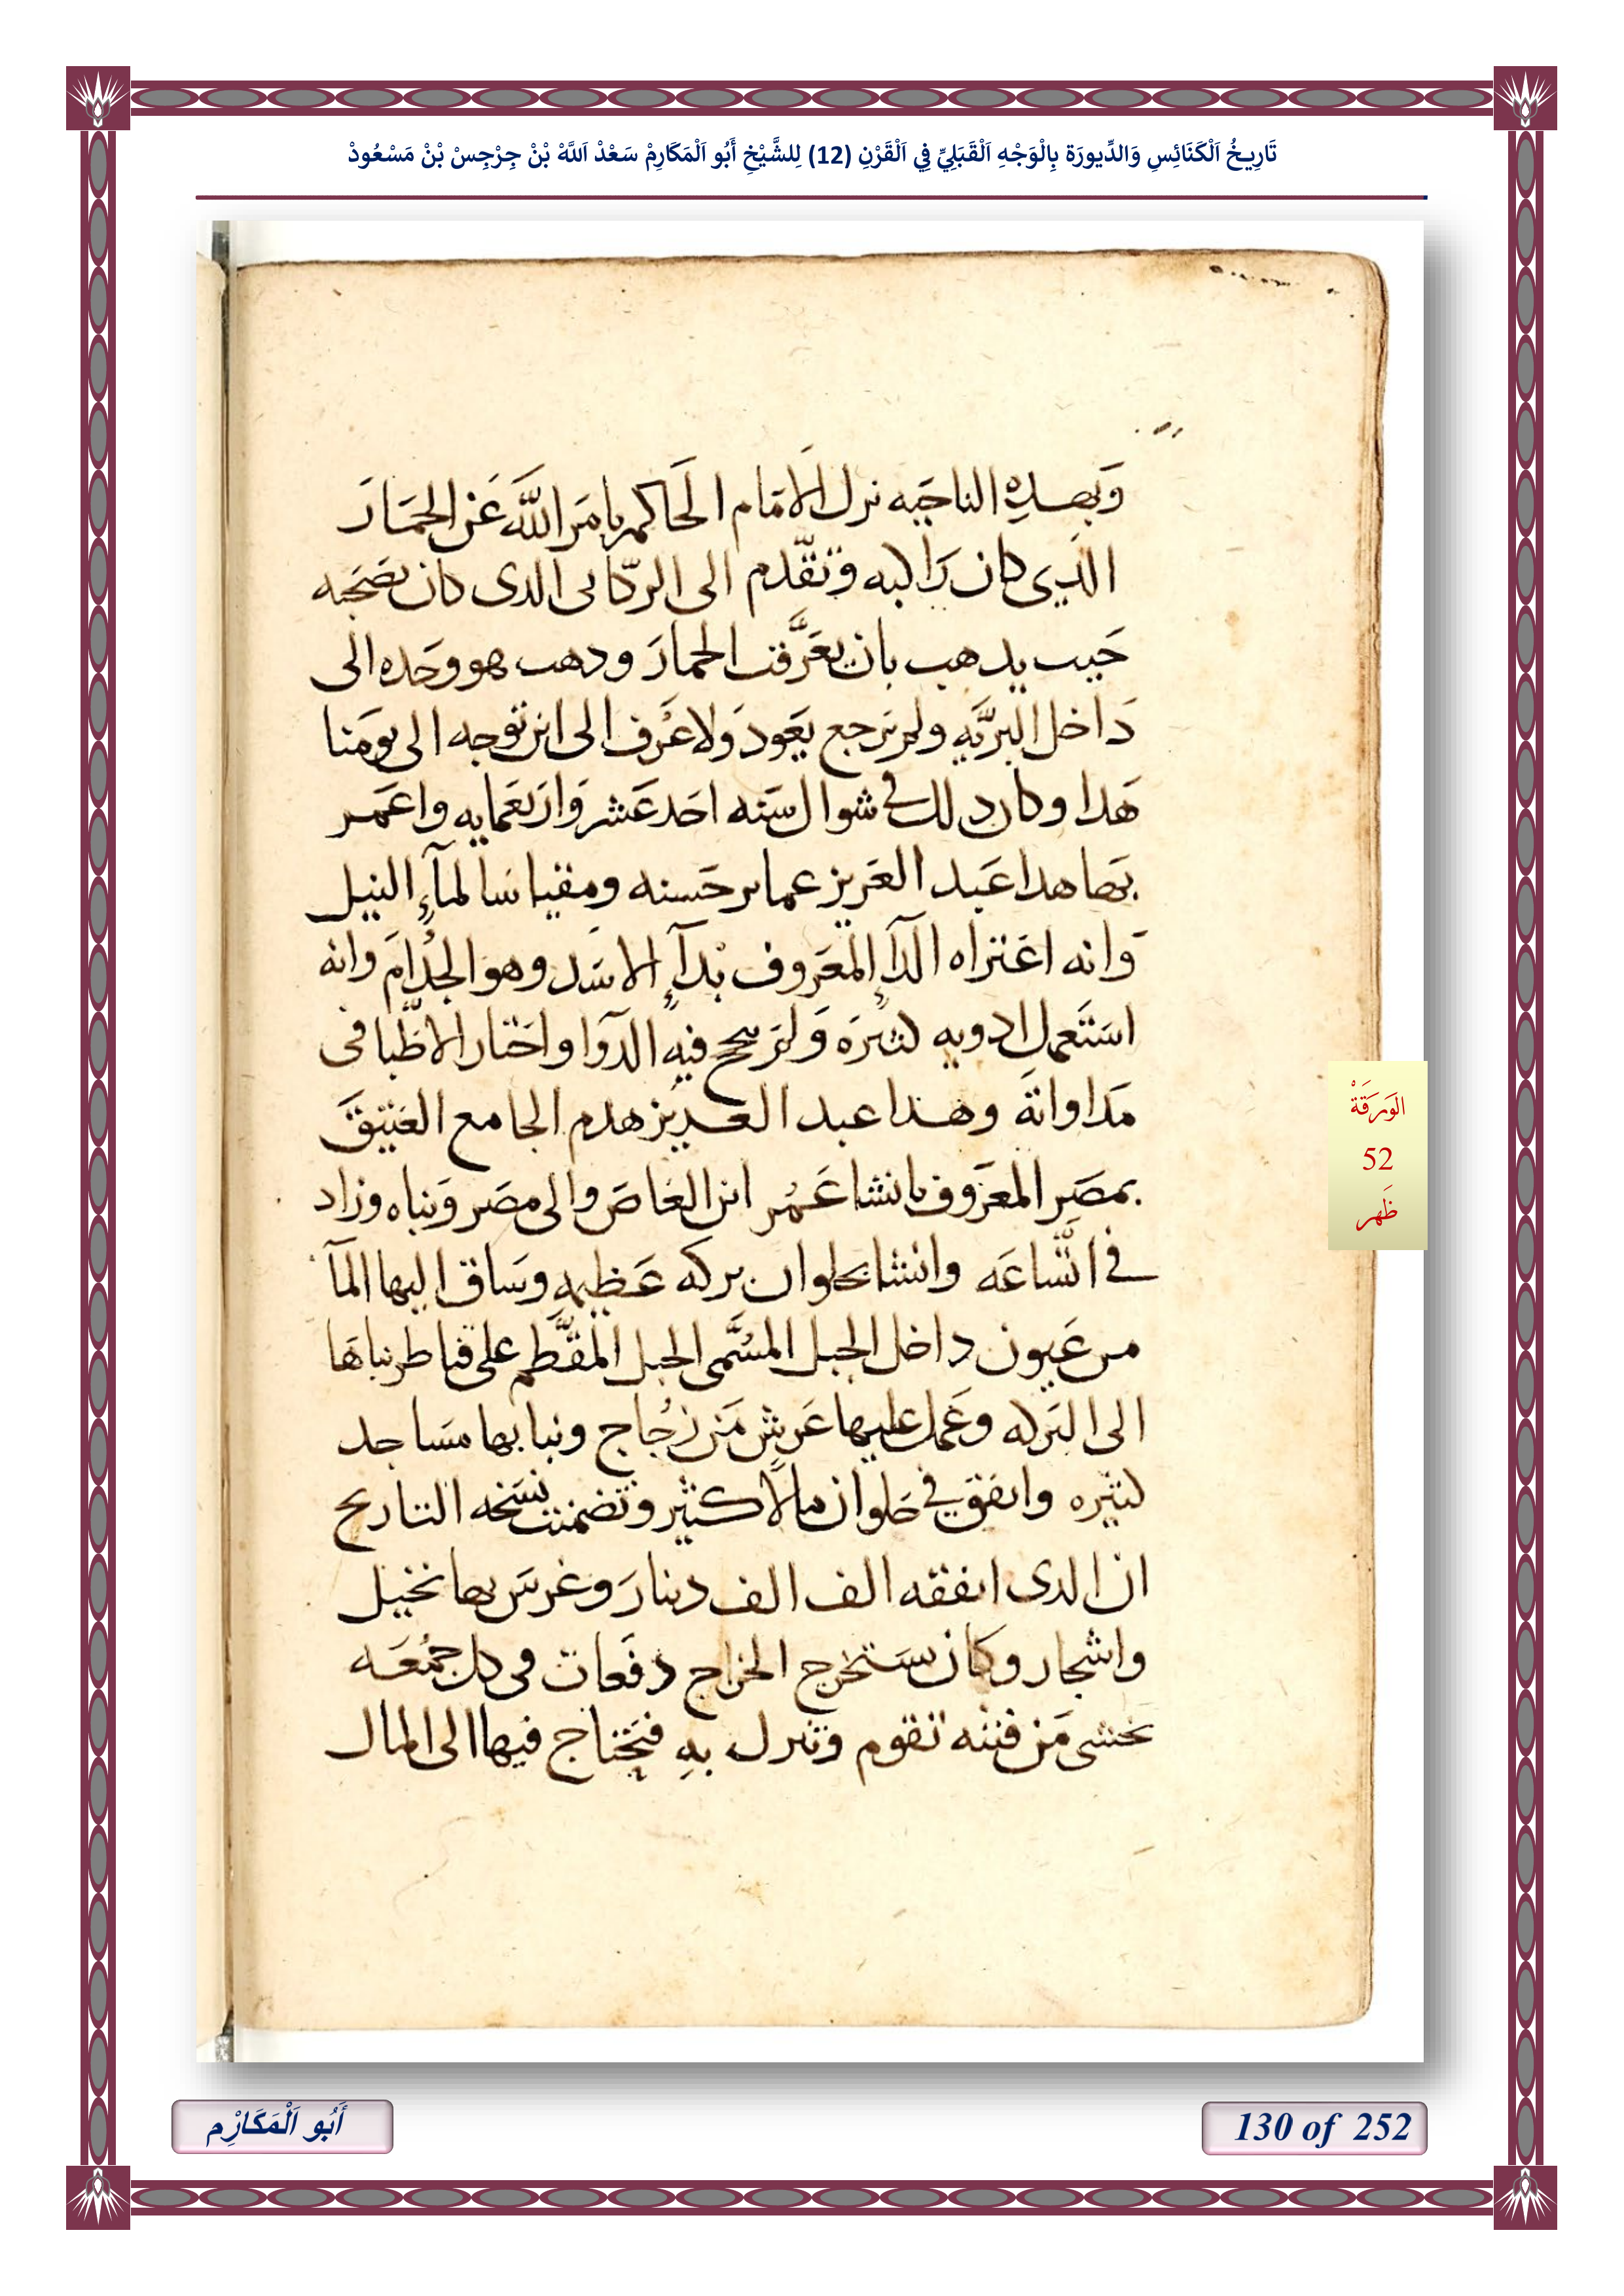 تَارِيخُ اَلْكَنَائِسِ وَالدِّيورَة بِالْوَجْهِ اَلْقَبَلِيِّ فِي اَلْقَرْنِ (12) لِلشَّيْخِ أَبُو اَلْمَكَارِمْ سَعْدْ اَللَّهْ بْنْ جِرْجِسْ بْنْ مَسْعُودْ
وَبهـدهِ الناحَيه نزل الامَام الحَاكم بامَر اللَّه عَن الحَمَارَ
الذي كان رَاكبه وَتقّدم الى الركّابى الدى كان يصَحَبه
حَيب يدهب بان يعَرَّقب الحمارَ ودهب هو وحَده الى
دَاخل البرّيَه ولم يَرجع يعَود وَلا عَرْف الى اين توجه الى يومَنا
هَدا وكان دلك فى شوال سَنه احَد عَشر وَاربَعَمايه واعمَر
بَها هدا عَبد العَزيز عماير حَسنه ومقياسَا لمآءِ النيل
وَانه اعَتراه الدآءِ المعَروف بْدآءِ الاسَد وهو الجُدامَ وانه
استَعمل ادويه كتيرَه وَلم ينجح فيهِ الدَوَا واحَتار الاطّبا فى
مَداواتهَ وهدا عبد العـزيز هدم الجامع العَتيقَ
بمصَر المعَروف بانشا عَمُر ابن العَاصَ والى مصَر وَبناه وزاد
فى اتَّساعَه وانشا بحلوان بركه عَظيمهِ وسَاق اليها المآ
من عَيون داخل الجبل المسُمَّى الجبل المقَّطم على قناطر بناهَا
الى البَركه وعَمل عليها عَرشٍ مَن زُجاج وبنا بها مسَاجد
كتيره وانفقَ فى حَلوان مالاً كثير وتضمنت نسَخه التاريخ
ان الدى انفقه الف الف دينارَ وغرسَ بها نخيل
واشجار وكان يسَتخرج الخراج دفَعات فى كل جمُعَه
يخشى مَن فتنه تقوم وتنزل بهِ فيحَتاج فيها الى المال
الوَرَقَةْ
52
ظَهر
أَبُو اَلْمَكَارِْم
130 of 252